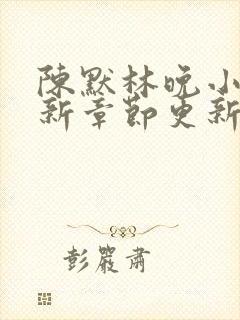 陳默林晚小
新章節更新
彭嚴肅